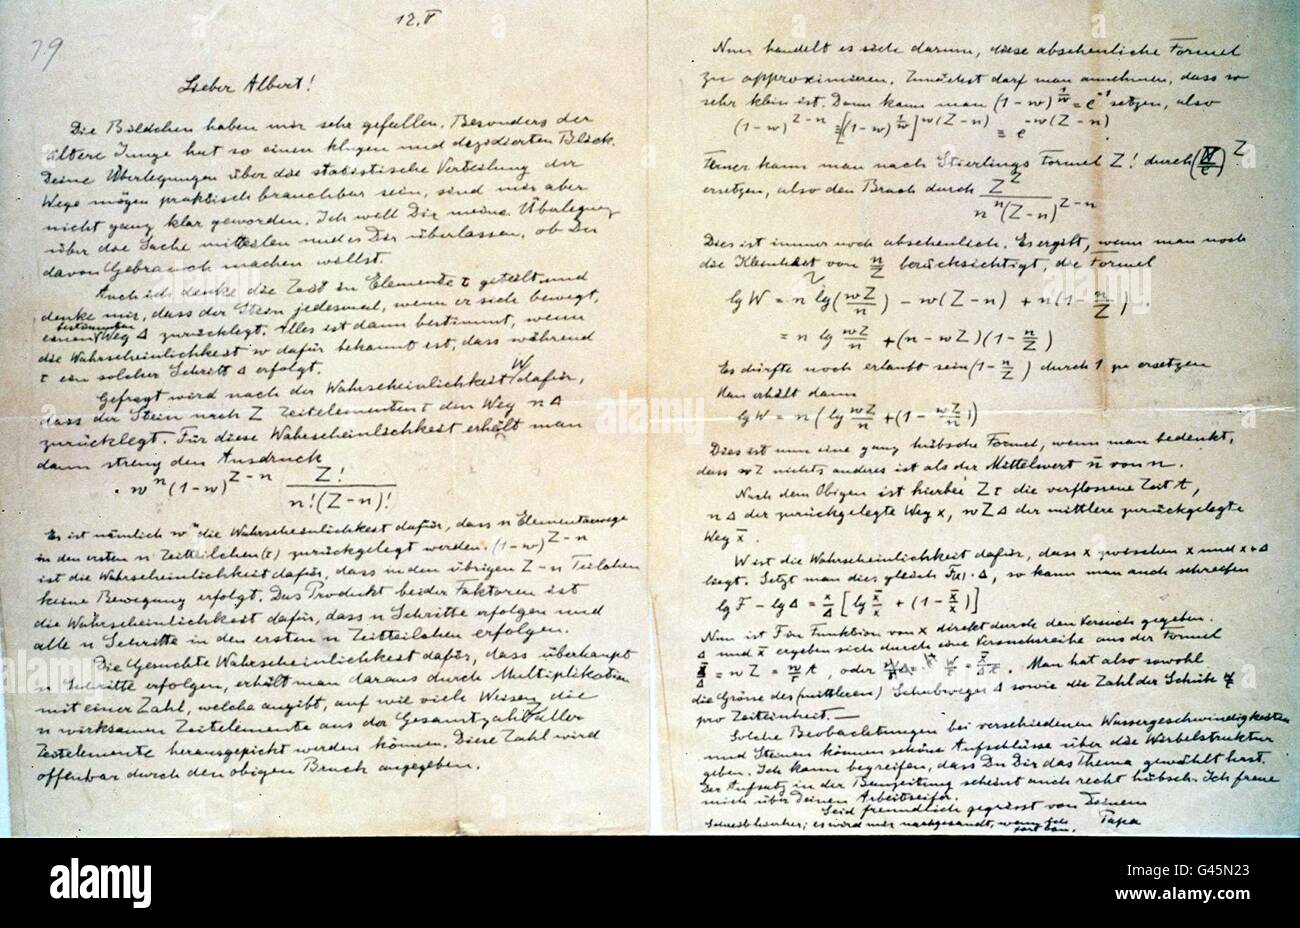 12.V
79
Lieber Albert!
Die Bildchen haben mir sehr gefallen. Besonders der
ältere Junge hat so einen klugen und dezidierten Blick.
Deine Überlegungen über die statistische Verteilung der
Wege mögen praktisch brauchbar sein, sind mir aber
nicht ganz klar geworden. Ich will Dir meine Überlegung
über die Sache mitteilen und es Dir überlassen, ob Du
davon Gebrauch machen willst.
Auch ich denke die Zeit in Elemente τ geteilt und
denke mir, dass der Stein jedesmal, wenn er sich bewegt,
einen bestimmten Weg Δ zurücklegt. Alles ist dann bestimmt, wenn
die Wahrscheinlichkeit w dafür bekannt ist, dass während
τ ein solcher Schritt Δ erfolgt.
Gefragt wird nach der Wahrscheinlichkeit W dafür,
dass der Stein nach Z Zeitelementen τ den Weg nΔ
zurücklegt. Für diese Wahrscheinlichkeit erhält man
dann streng den Ausdruck
w^n (1-w)^{Z-n} Z! / n!(Z-n)!
Es ist nämlich w^n die Wahrscheinlichkeit dafür, dass n Elementarwege
in den ersten n Zeitteilchen (τ) zurückgelegt werden. (1-w)^{Z-n}
ist die Wahrscheinlichkeit dafür, dass in den übrigen Z-n Teilchen
keine Bewegung erfolgt. Das Produkt beider Faktoren ist
die Wahrscheinlichkeit dafür, dass n Schritte erfolgen und
alle n Schritte in den ersten n Zeitteilchen erfolgen.
Die Gesuchte Wahrscheinlichkeit dafür, dass überhaupt
n Schritte erfolgen, erhält man daraus durch Multiplikation
mit einer Zahl, welche angibt, auf wie viele Weisen die
n wirksamen Zeitelemente aus der Gesamtzahl Z aller
Zeitelemente herausgepickt werden können. Diese Zahl wird
offenbar durch den obigen Bruch angegeben.
Nun handelt es sich darum, diese abscheuliche Formel
zu approximieren. Zunächst darf man annehmen, dass w
sehr klein ist. Dann kann man (1-w)^{1/w} = e^{-1} setzen, also
(1-w)^{Z-n} = [(1-w)^{1/w}]^{w(Z-n)} = e^{-w(Z-n)}
Ferner kann man nach Stierlings Formel Z! durch (Z/e)^Z
ersetzen, also den Bruch durch Z^Z / n^n (Z-n)^{Z-n}
Dies ist immer noch abscheulich. Es ergibt, wenn man noch
die Kleinheit von n/Z berücksichtigt, die Formel
lg W = n lg(wZ/n) - w(Z-n) + n(1 - n/Z).
= n lg wZ/n + (n-wZ)(1 - n/Z)
Es dürfte noch erlaubt sein (1 - n/Z) durch 1 zu ersetzen
Man erhält dann
lg W = n (lg wZ/n + (1 - wZ/n))
Dies ist nun eine ganz hübsche Formel, wenn man bedenkt,
dass wZ nichts anderes ist als der Mittelwert n̄ von n.
Nach dem Obigen ist hierbei Zτ die verflossene Zeit t,
nΔ der zurückgelegte Weg x, wZΔ der mittlere zurückgelegte
Weg x̄.
W ist die Wahrscheinlichkeit dafür, dass x zwischen x und x+Δ
liegt. Setzt man dies gleich F(x)·Δ, so kann man auch schreiben
lg F - lg Δ = x/Δ [lg x̄/x + (1 - x̄/x)]
Nun ist F in Funktion von x direkt durch den Versuch gegeben.
Δ und x̄ ergeben sich durch eine Versuchsreihe aus der Formel
x̄/Δ = wZ = w/τ t, oder
Man hat also sowohl
die Grösse des (mittleren) Schubweges Δ sowie die Zahl der Schübe w/τ
pro Zeiteinheit.—
Solche Beobachtungen bei verschiedenen Wassergeschwindigkeiten
und Steinen können schöne Aufschlüsse über die Wirbelstruktur
geben. Ich kann begreifen, dass Du Dir das Thema gewählt hast.
Der Aufsatz in der Bauzeitung scheint auch recht hübsch. Ich freue
mich über Deinen Arbeitseifer.
Seid freundlich gegrüsst von Deinem
Papa
es wird mir nachgesandt, wenn ich
fort bin.
alamy
alamy
G45N23
www.alamy.com